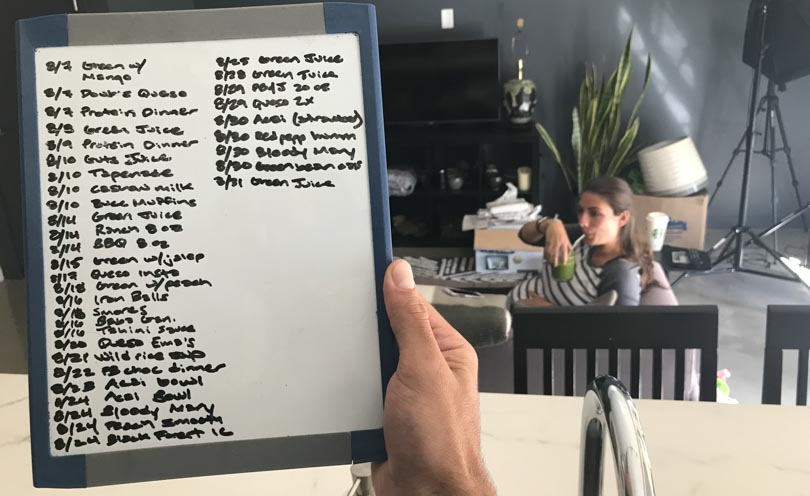 8/7 Green w/
Mango
8/7 Doub's Queso
8/7 Protein Dinner
8/8 Green Juice
8/9 Protein Dinner
8/10 Guts Juice
8/10 Tapenade
8/10 cashew milk
8/10 Buck Muffins
8/14 Green Juice
8/14 Ranch 8 oz
8/14 BBQ 8 oz
8/15 Green w/jalep
8/17 Queso insta
8/18 Green w/peach
8/16 Iron Balls
8/16 Smores
8/16 Baba Gan.
8/16 Tahini sauce
8/20 Queso Emo's
8/21 Wild rice
8/22 PB choc dinner
8/23 Acai bowl
8/24 Acai Bowl
8/24 Bloody Mary
8/24 Peach Smooth
8/24 Black Forest
8/25 Green Juice
8/28 Green Juice
8/29 PB/J 20 oz
8/29 Queso 2x
8/30 Acai (strawbed)
8/30 Red pepp humm
8/30 Bloody Mary
8/30 Green bean
8/31 Green Juice